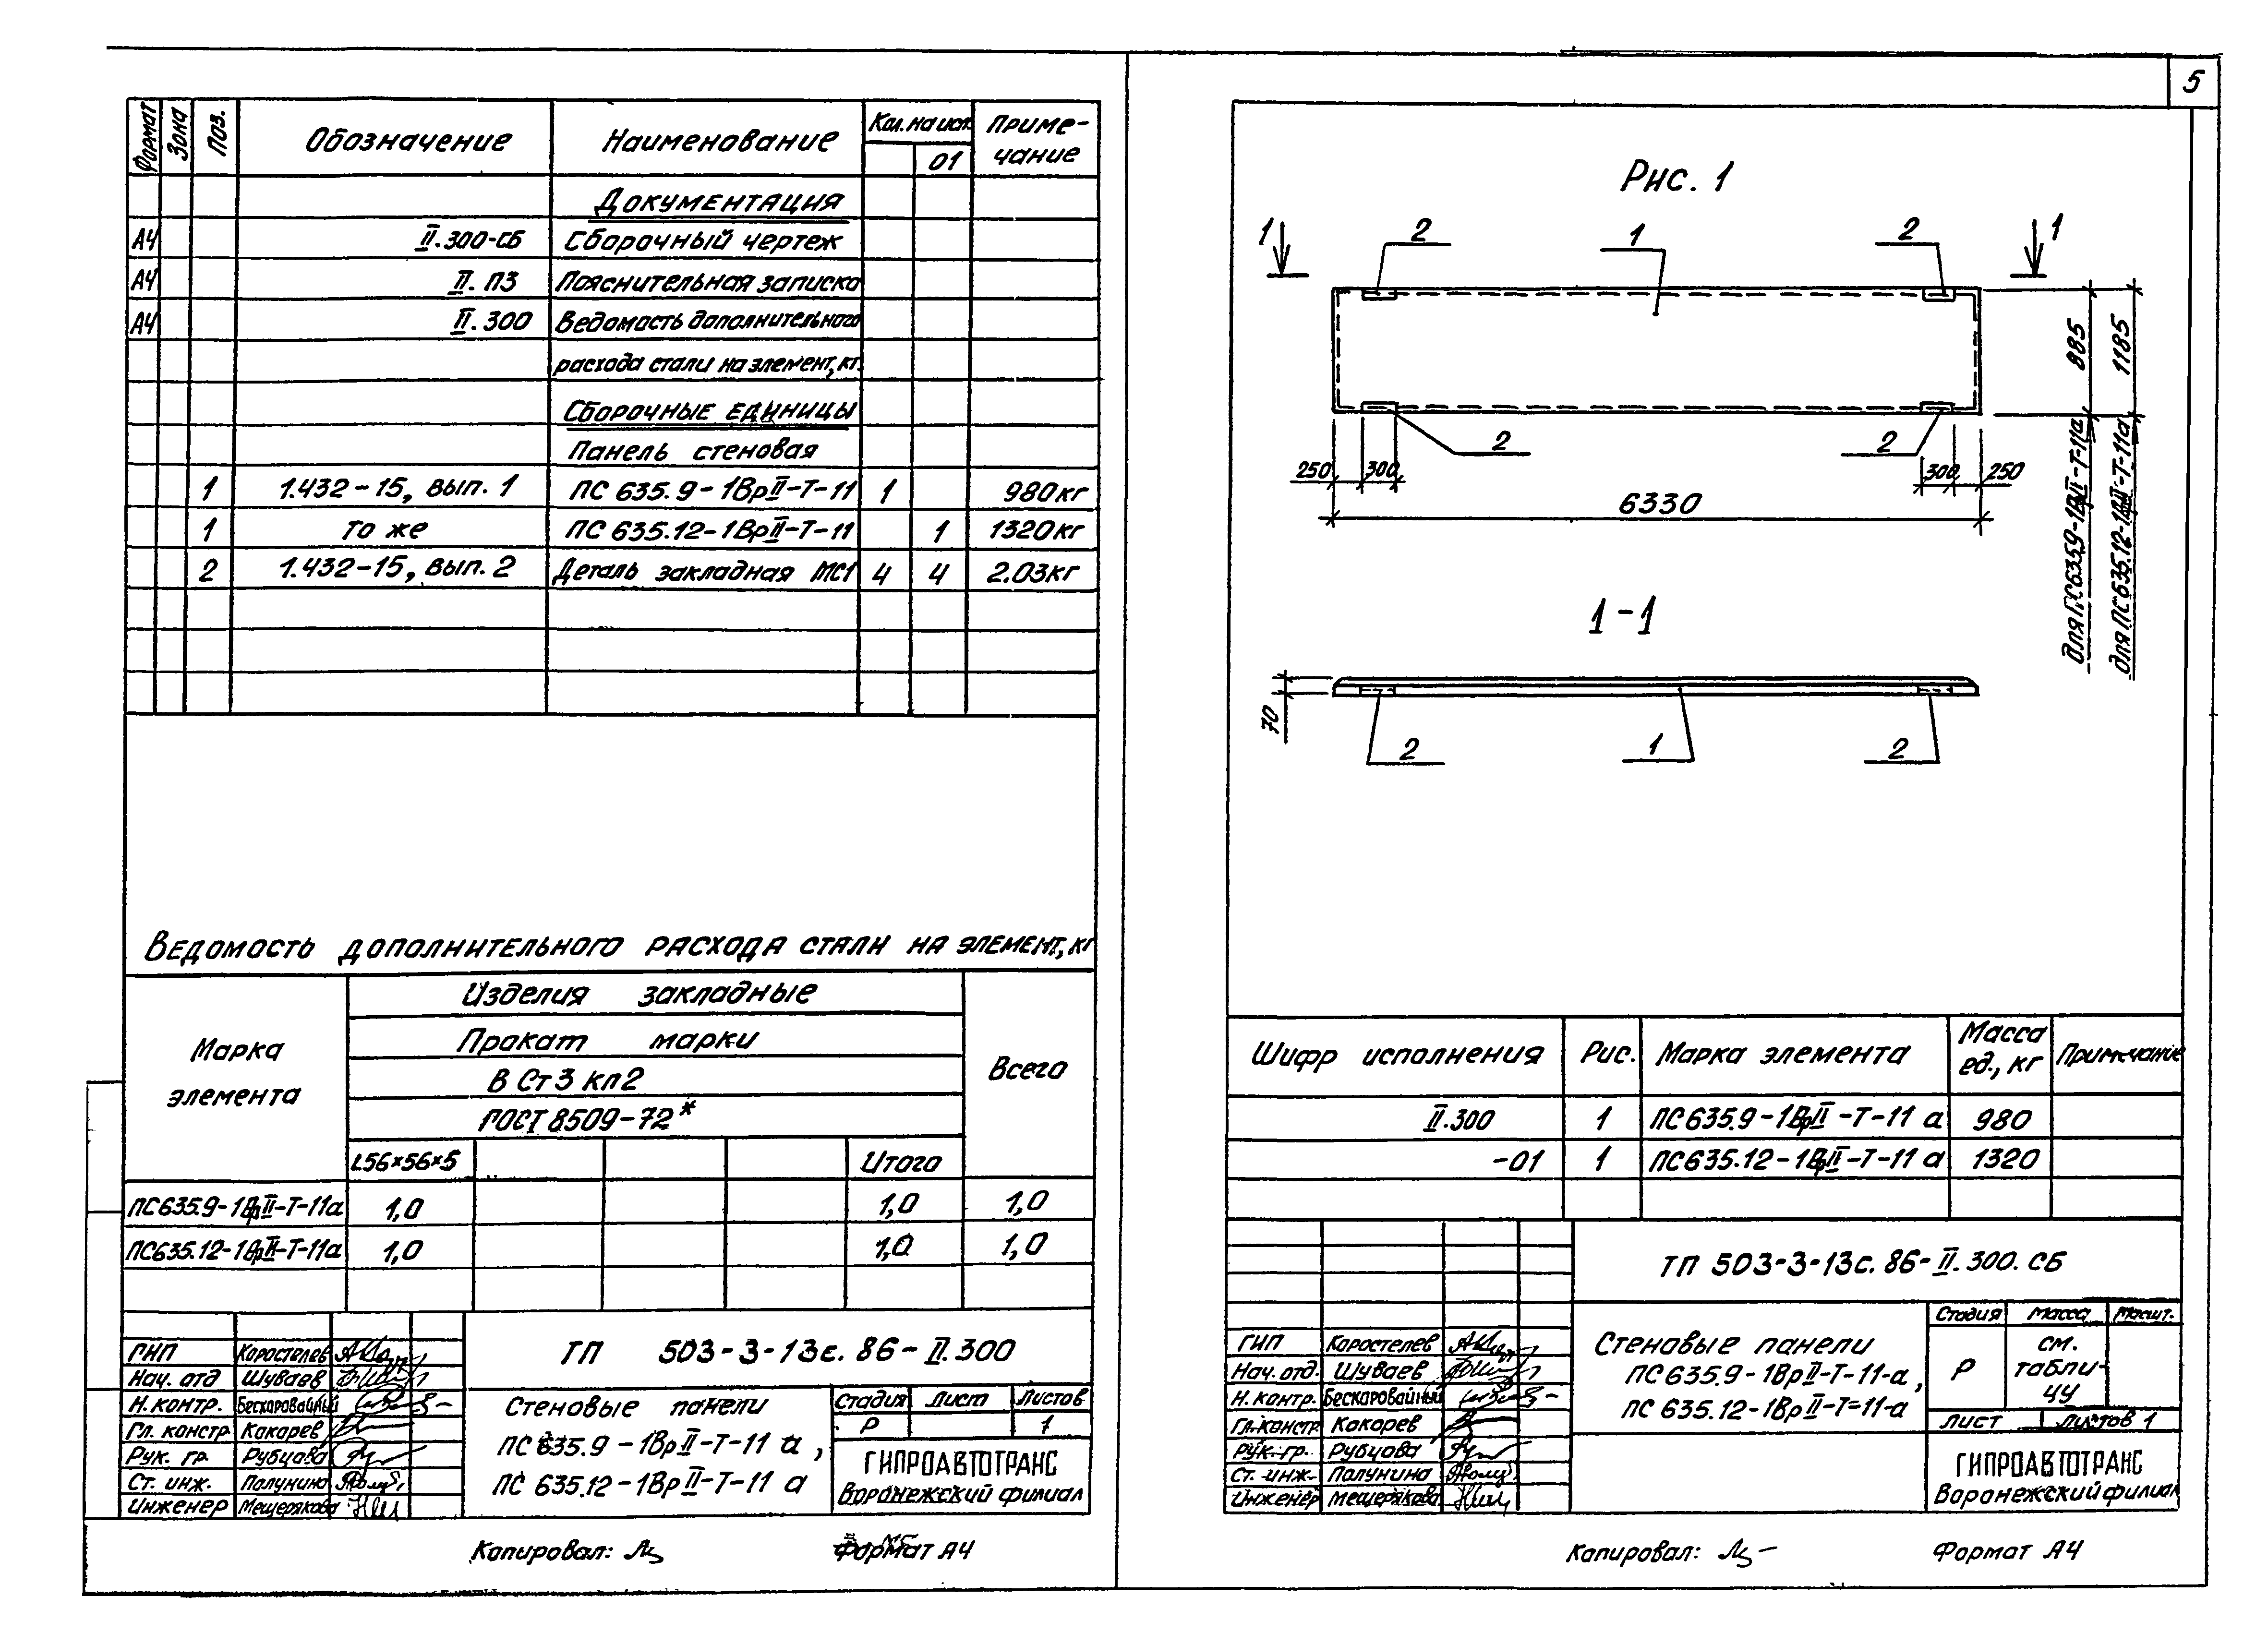 5
Формат Зона Поз. Обозначение Наименование Кол. на исп. Приме-
01 чание
Документация
А4 II.300-СБ Сборочный чертеж
А4 II.ПЗ Пояснительная записка
А4 II.300 Ведомость дополнительного
расхода стали на элемент, кг.
Сборочные единицы
Панель стеновая
1 1.432-15, вып. 1 ПС 635.9-1ВрII-Т-11 1 980кг
1 то же ПС 635.12-1ВрII-Т-11 1 1320кг
2 1.432-15, вып. 2 Деталь закладная МС1 4 4 2.03кг
Ведомость дополнительного расхода стали на элемент, кг
Марка элемента
Изделия закладные
Прокат марки
В Ст3 кп2
ГОСТ 8509-72*
Всего
L56×56×5 Итого
ПС635.9-1ВрII-Т-11а 1,0 1,0 1,0
ПС635.12-1ВрII-Т-11а 1,0 1,0 1,0
ГИП Коростелев
Нач. отд Шуваев
Н. контр. Бескоровайный
Гл. констр Кокорев
Рук. гр. Рубцова
Ст. инж. Полунина
Инженер Мещерякова
ТП 503-3-13с.86-II.300
Стеновые панели
ПС 635.9-1ВрII-Т-11 а,
ПС 635.12-1ВрII-Т-11 а
Стадия Лист Листов
Р 1
ГИПРОАВТОТРАНС
Воронежский филиал
Копировал:
Формат А4
Рис. 1
1 2 1 2 1
2 2
250 300 300 250
6330
885
1185
Для ПС635.9-1ВрII-Т-11а
для ПС635.12-1ВрII-Т-11а
1-1
70
2 1 2
Шифр исполнения Рис. Марка элемента Масса ед., кг Примечание
II.300 1 ПС635.9-1ВрII-Т-11 а 980
-01 1 ПС635.12-1ВрII-Т-11 а 1320
ТП 503-3-13с.86-II.300.СБ
ГИП Коростелев
Нач. отд. Шуваев
Н. контр. Бескоровайный
Гл. констр Кокорев
Рук. гр. Рубцова
Ст. инж. Полунина
Инженер Мещерякова
Стеновые панели
ПС 635.9-1ВрII-Т-11-а,
ПС 635.12-1ВрII-Т-11-а
Стадия Масса Масшт.
Р см. табли-цу
Лист Листов 1
ГИПРОАВТОТРАНС
Воронежский филиал
Копировал:
Формат А4